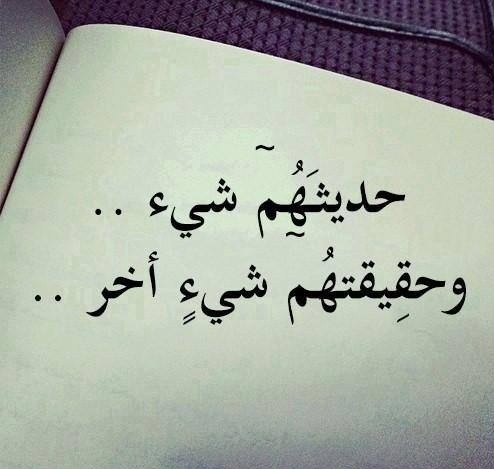 حديثهَُِمٓ شيء ..
وحقِيقتهُمٓ شيءٍ أخر ..